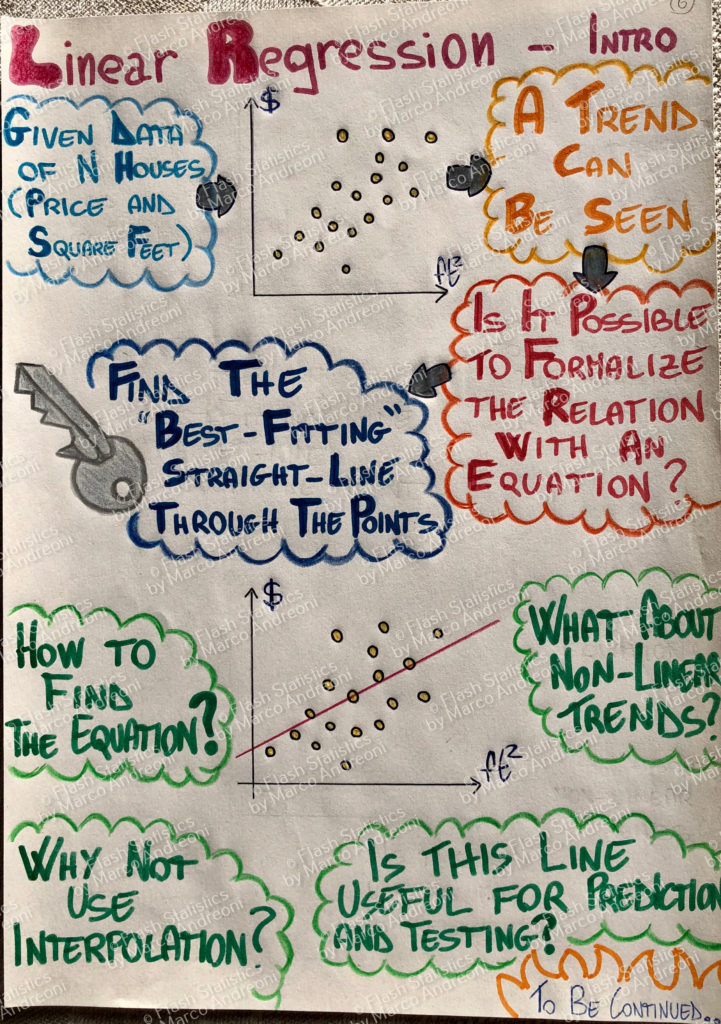 6
Linear Regression - INTRO
GIVEN DATA
OF N HOUSES
(PRICE AND
SQUARE FEET)
$
ft²
A TREND
CAN
BE SEEN
IS IT POSSIBLE
TO FORMALIZE
THE RELATION
WITH AN
EQUATION?
FIND THE
"BEST-FITTING"
STRAIGHT-LINE
THROUGH THE POINTS
HOW TO
FIND
THE EQUATION?
$
ft²
WHAT ABOUT
NON-LINEAR
TRENDS?
WHY NOT
USE
INTERPOLATION?
IS THIS LINE
USEFUL FOR PREDICTION
AND TESTING?
TO BE CONTINUED..
© Flash Statistics
by Marco Andreoni